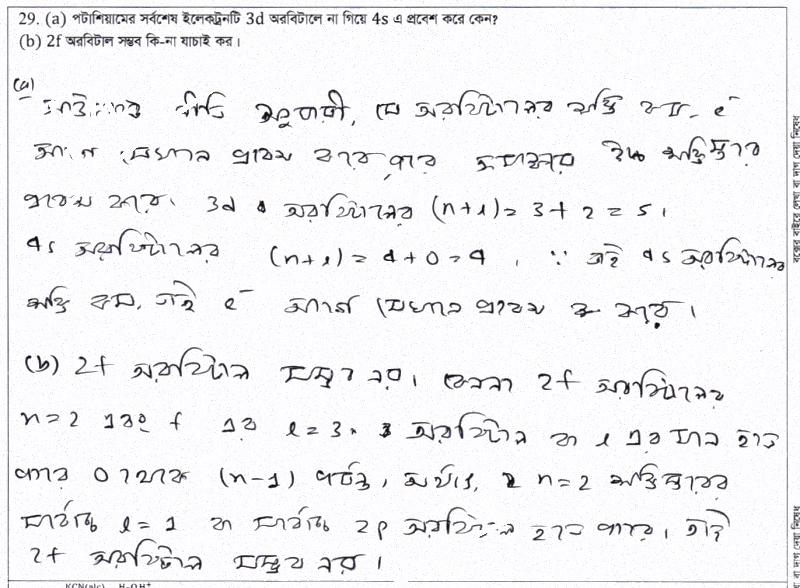 29. (a) পটাশিয়ামের সর্বশেষ ইলেকট্রনটি 3d অরবিটালে না গিয়ে 4s এ প্রবেশ করে কেন?
(b) 2f অরবিটাল সম্ভব কি-না যাচাই কর।
(a)
নীতি অনুযায়ী, যে অরবিটালের শক্তি কম, e⁻
প্রবেশ করে পরে শক্তিস্তরে
প্রবেশ করে। 3d অরবিটালের (n+l) = 3+2 = 5।
4s অরবিটালের (n+l) = 4+0 = 4, ∵ তাই 4s অরবিটালের
শক্তি কম, তাই e⁻ আগে সেখানে প্রবেশ করে।
(b) 2f অরবিটাল সম্ভব নয়। কেননা 2f অরবিটালের
n=2 এবং f এর l=3। অরবিটাল বা l এর মান হতে
পারে 0 থেকে (n-1) পর্যন্ত, অর্থাৎ, n=2 শক্তিস্তরের
সর্বোচ্চ l=1 বা সর্বোচ্চ 2p অরবিটাল হতে পারে। তাই
2f অরবিটাল সম্ভব নয়।
KCN(alc) H-OH⁺
বক্সের বাইরে লেখা বা দাগ দেয়া নিষেধ